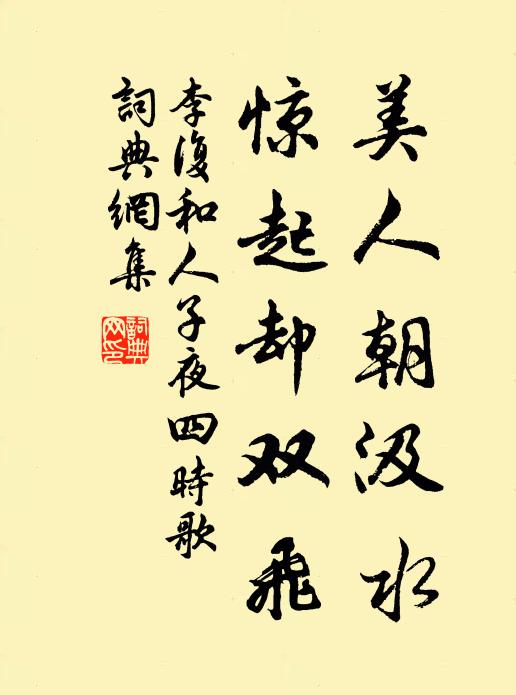 美人朝汲水
惊起却双飛
李復和人子夜四時歌
詞典網集
詞典网印